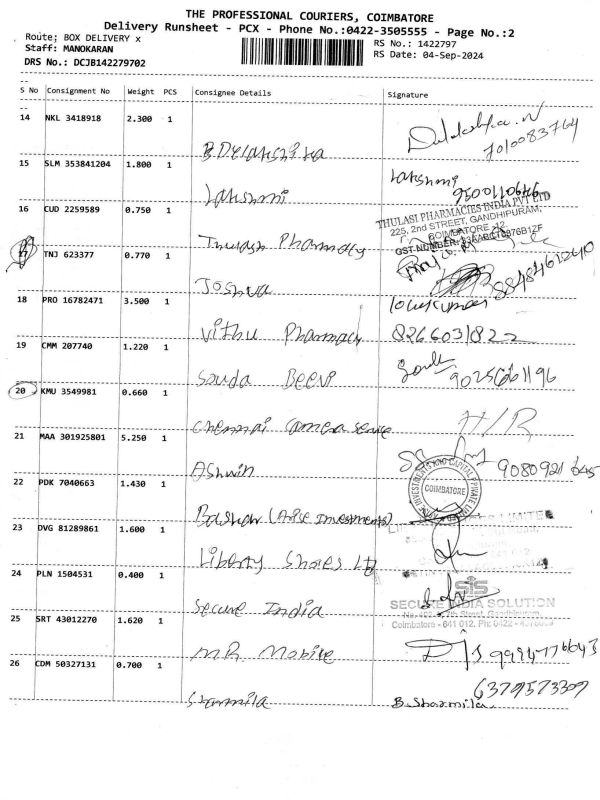 THE PROFESSIONAL COURIERS, COIMBATORE
Delivery Runsheet - PCX - Phone No.:0422-3505555 - Page No.:2
Route; BOX DELIVERY x
Staff: MANOKARAN
DRS No.: DCJB142279702
RS No.: 1422797
RS Date: 04-Sep-2024
S No Consignment No Weight PCS Consignee Details Signature
14 NKL 3418918 2.300 1
7010083764
15 SLM 353841204 1.800 1
Lakshmi Lakshmi
16 CUD 2259589 0.750 1
THULASI PHARMACIES INDIA PVT LTD
225, 2nd STREET, GANDHIPURAM,
COIMBATORE-12.
Thulasi Pharmacy
17 TNJ 623377 0.770 1
Joshva
18 PRO 16782471 3.500 1
Vithu Pharmacy 8266031822
19 CMM 207740 1.220 1
Souda Beevi 9025661196
20 KMU 3549981 0.660 1
Chennai Camera Service H/R
21 MAA 301925801 5.250 1
Ashwin 9080921645
22 PDK 7040663 1.430 1
COIMBATORE
(Arise Investments)
23 DVG 81289861 1.600 1
Liberty Shoes Ltd
24 PLN 1504531 0.400 1
Secure India
SECURE INDIA SOLUTION
Coimbatore - 641 012.
25 SRT 43012270 1.620 1
MR Mobile
26 CDM 50327131 0.700 1
6379573307
Sharmila B. Sharmila.